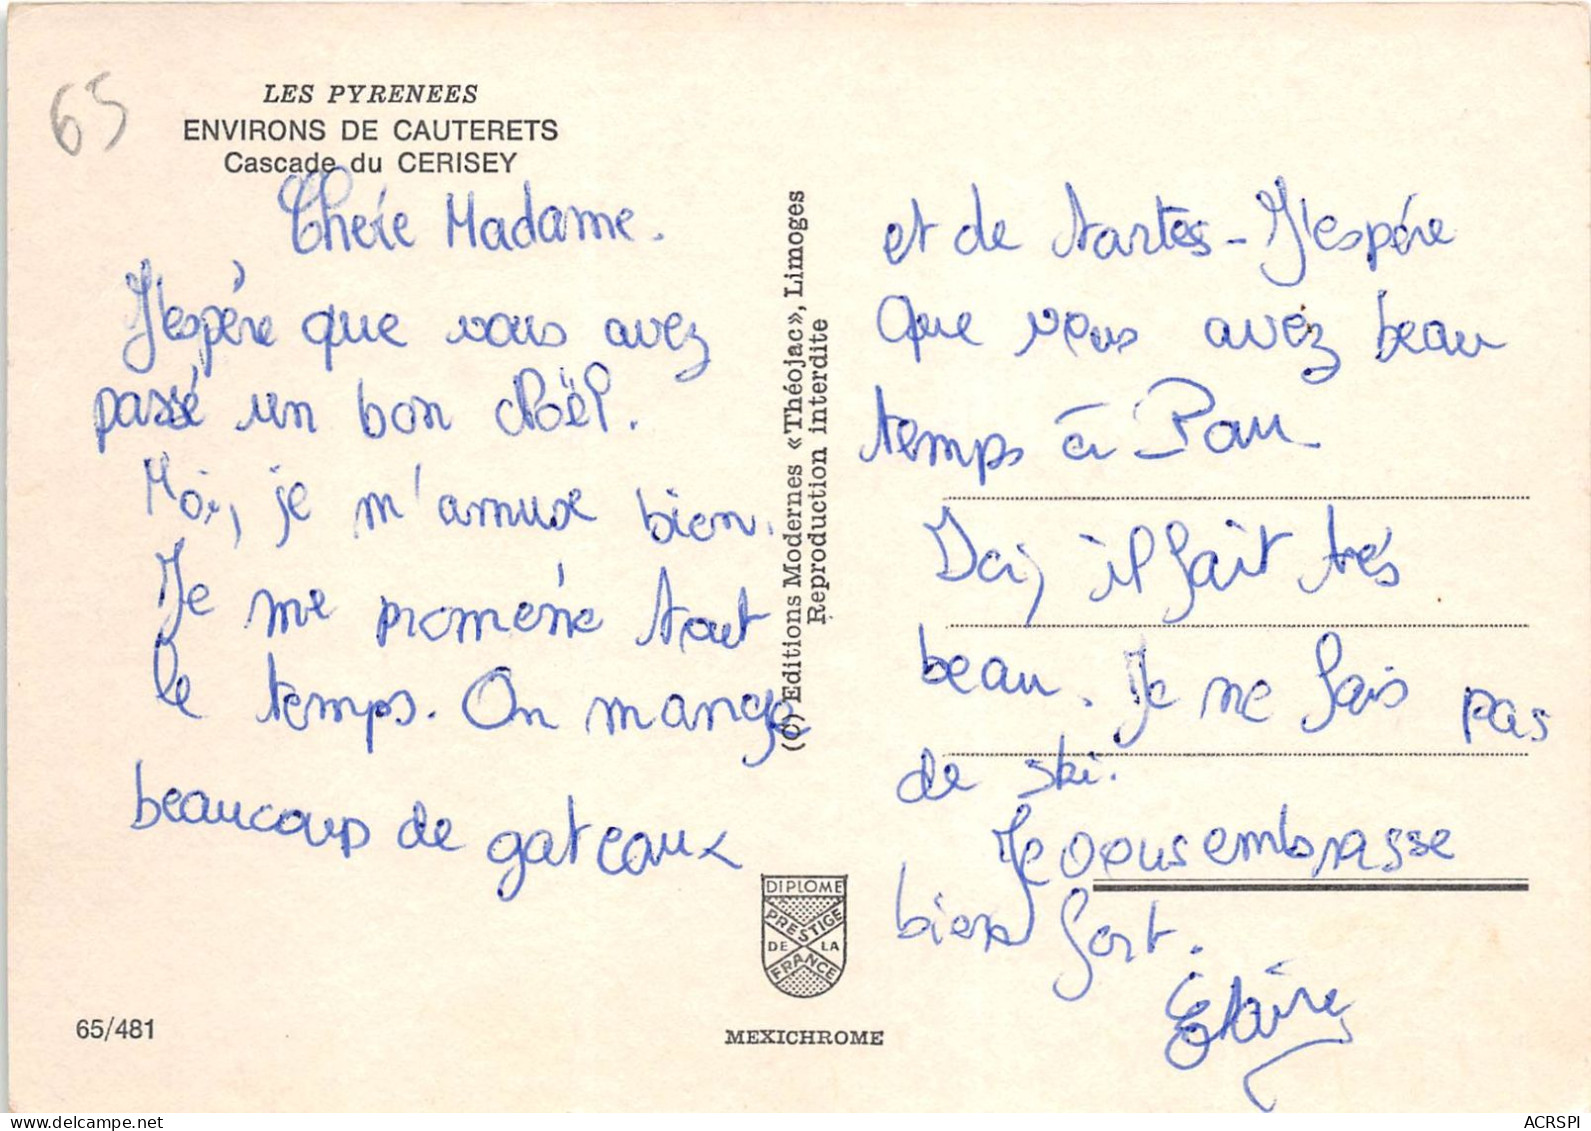 65
LES PYRENEES
ENVIRONS DE CAUTERETS
Cascade du CERISEY
Chère Madame.
J'espére que vous avez
passé un bon Noël.
Moi, je m'amuse bien.
Je me proméne tout
le temps. On mange
beaucoup de gateaux
et de tartes - J'espére
que vous avez beau
temps à Pau
Ici, il fait trés
beau. Je ne fais pas
de ski.
Je vous embrasse
bien fort.
Claire
(C) Editions Modernes «Théojac», Limoges
Reproduction interdite
DIPLOME
PRESTIGE
DE LA
FRANCE
65/481
MEXICHROME
www.delcampe.net
ACRSPI